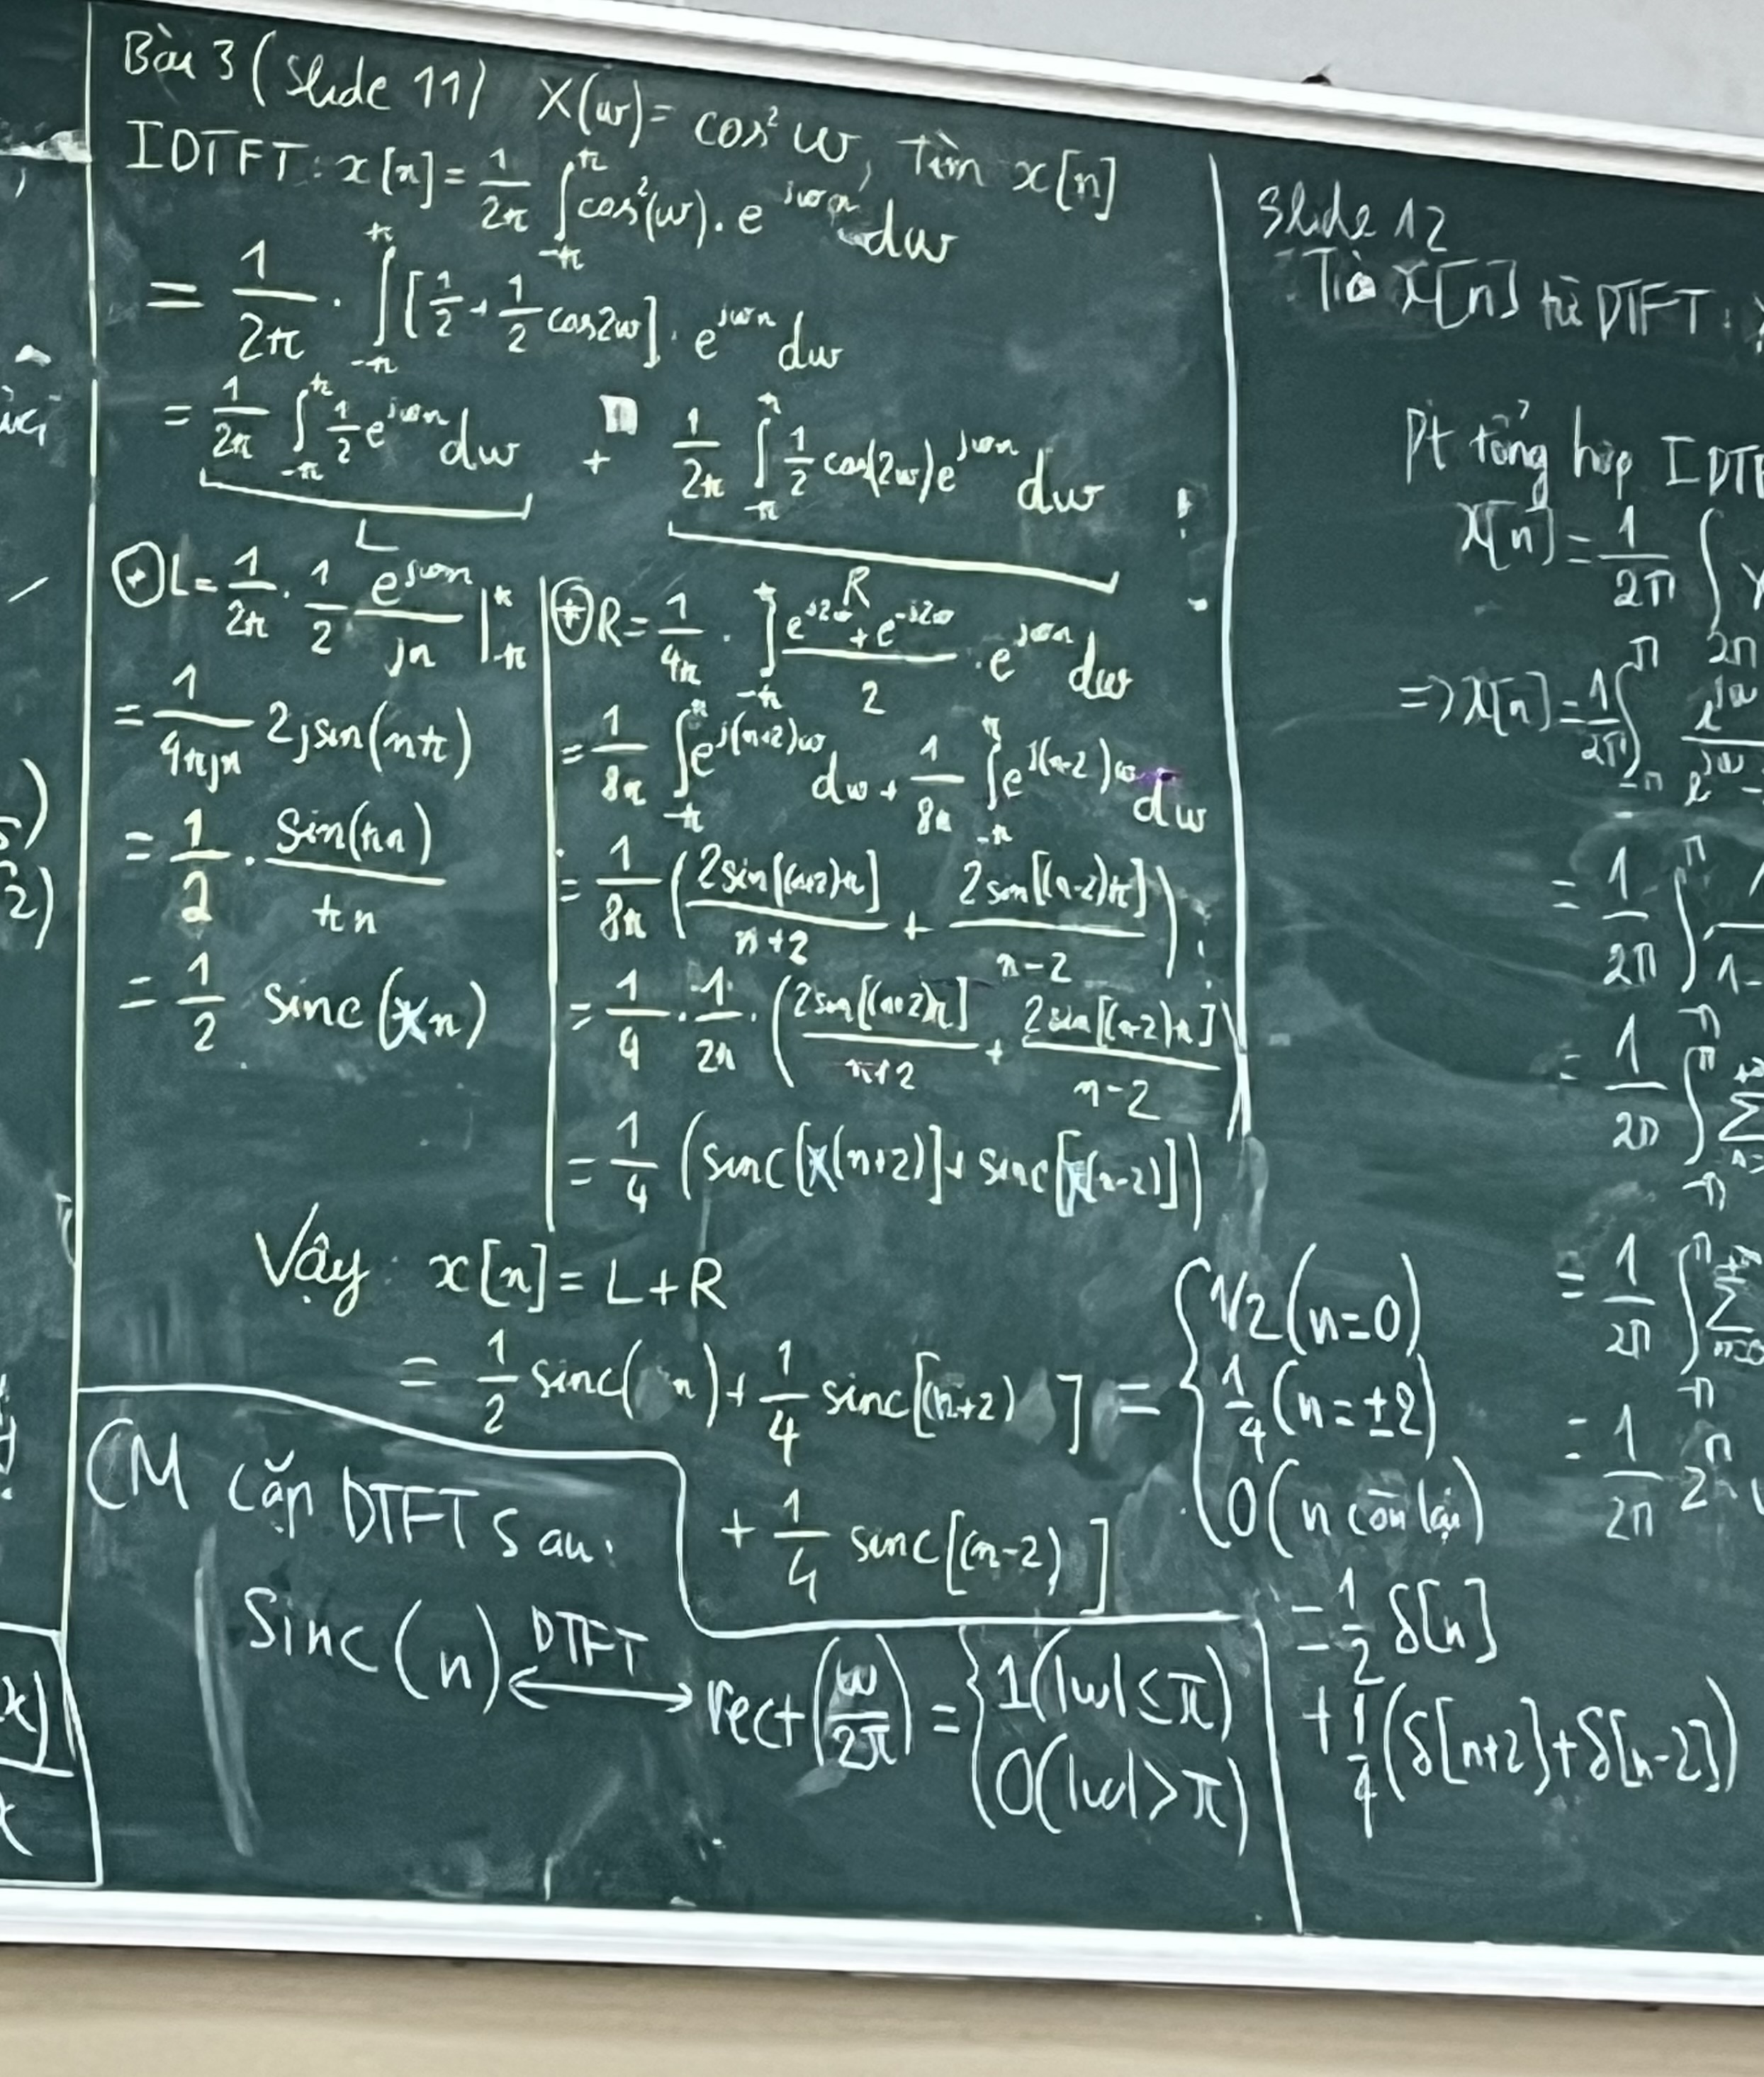 Bài 3 (slide 11) X(ω) = cos² ω, Tìm x[n]
IDTFT: x[n] = 1/2π ∫_{-π}^{π} cos²(ω). e^{jωn} dω
= 1/2π . ∫_{-π}^{π} [1/2 + 1/2 cos2ω] . e^{jωn} dω
= 1/2π ∫_{-π}^{π} 1/2 e^{jωn} dω + 1/2π ∫_{-π}^{π} 1/2 cos(2ω) e^{jωn} dω
L
R
⊕ L = 1/2π . 1/2 e^{jωn}/jn |_{-π}^{π}
= 1/4πjn 2jsin(nπ)
= 1/2 . sin(πn)/πn
= 1/2 sinc(n)
⊕ R = 1/4π . ∫_{-π}^{π} (e^{j2ω} + e^{-j2ω})/2 . e^{jωn} dω
= 1/8π ∫_{-π}^{π} e^{j(n+2)ω} dω + 1/8π ∫_{-π}^{π} e^{j(n-2)ω} dω
= 1/8π (2sin[(n+2)π]/n+2 + 2sin[(n-2)π]/n-2)
= 1/4 . 1/2π . (2sin[(n+2)π]/n+2 + 2sin[(n-2)π]/n-2)
= 1/4 (sinc[(n+2)] + sinc[(n-2)])
Vậy: x[n] = L + R
= 1/2 sinc(n) + 1/4 sinc[(n+2)] + 1/4 sinc[(n-2)]
= { 1/2 (n=0)
1/4 (n=±2)
0 (n còn lại)
= 1/2 δ[n]
+ 1/4 (δ[n+2] + δ[n-2])
CM cặp DTFT sau:
Sinc(n) <—DTFT—> rect(ω/2π) = { 1 (|ω| ≤ π)
0 (|ω| > π)
Slide 12
Tìm x[n] từ DTFT:
Pt tổng hợp IDTF
x[n] = 1/2π ∫
2π
=> x[n] = 1/2π ∫_{-π}^{π} e^{jω}
= 1/2π ∫
= 1/2π ∫_{-π}^{π} Σ
= 1/2π ∫_{-π}^{π} Σ
= 1/2π